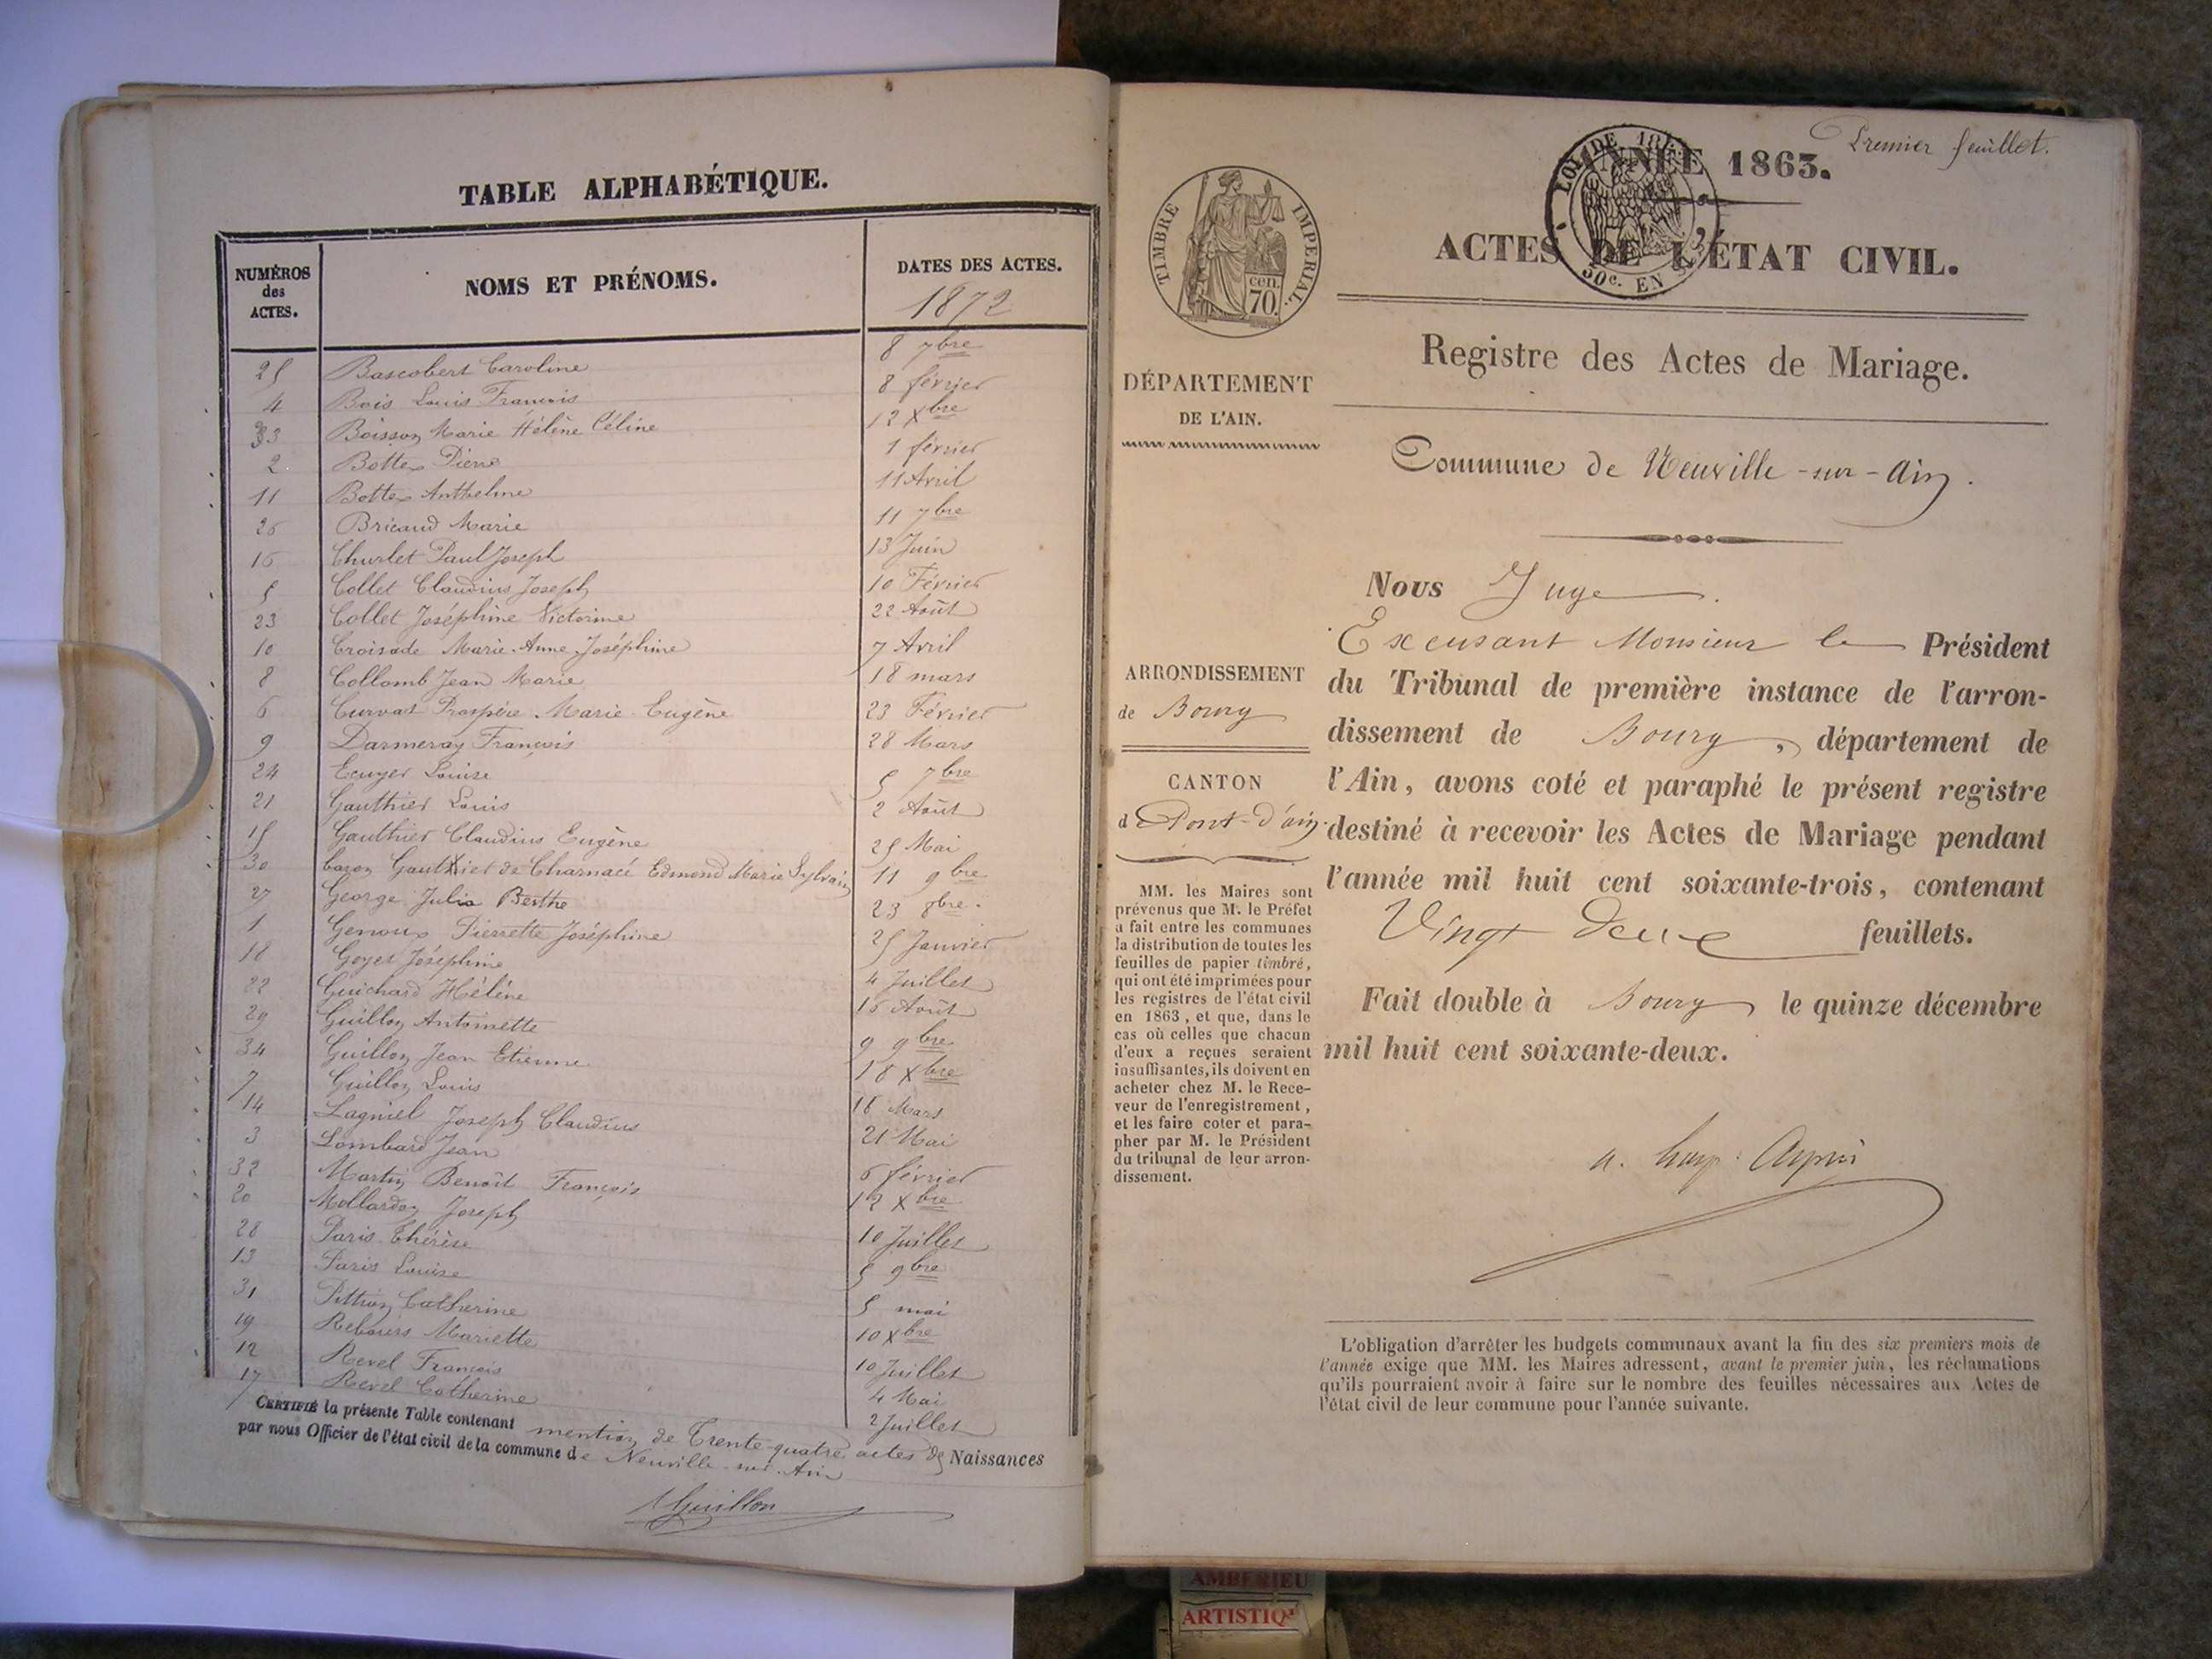 TABLE ALPHABÉTIQUE.
NUMÉROS des ACTES.
NOMS ET PRÉNOMS.
DATES DES ACTES.
1872
25 Bascobert Caroline 8 7bre
4 Bois Louis François 8 février
33 Boisson Marie Hélène Céline 12 Xbre
2 Bottex Pierre 1 février
11 Bottex Anthelme 11 Avril
26 Bricaud Marie 11 7bre
16 Churlet Paul Joseph 13 Juin
5 Collet Claudius Joseph 10 Février
23 Collet Joséphine Victorine 22 Août
10 Croisode Marie Anne Joséphine 7 Avril
8 Collomb Jean Marie 18 mars
6 Curvat Prospère Marie Eugène 23 Février
9 Darmeray François 28 Mars
24 Ecuyer Louise 5 7bre
21 Gauthier Louis 2 Août
15 Gauthier Claudius Eugène 25 Mai
30 baron Gauthier de Charnacé Edmond Marie Sylvain 11 9bre
27 George Julia Berthe 23 8bre.
1 Genoux Pierrette Joséphine 25 Janvier
18 Goyet Joséphine 4 Juillet
22 Guichard Hélène 16 Août
29 Guillon Antoinette 9 9bre
34 Guillon Jean Etienne 18 Xbre
7 Guillon Louis 18 Mars
14 Lagniel Joseph Claudius 21 Mai
3 Lombard Jean 6 février
32 Martin Benoît François 12 Xbre
20 Mollardon Joseph 10 Juillet
28 Paris Thérèse 5 9bre
13 Paris Louise 5 mai
31 Pittion Catherine 10 Xbre
19 Rebours Mariette 10 Juillet
12 Revel François 4 Mai
17 Revel Catherine 2 Juillet
CERTIFIÉ la présente Table contenant mention de Trente-quatre actes de Naissances
par nous Officier de l'état civil de la commune de Neuville-sur-Ain
Guillon
Premier feuillet.
ANNÉE 1863.
ACTES DE L'ÉTAT CIVIL.
LOI DE
50c. EN
TIMBRE IMPÉRIAL.
cen. 70.
Registre des Actes de Mariage.
DÉPARTEMENT
DE L'AIN.
Commune de Neuville-sur-Ain.
ARRONDISSEMENT
de Bourg
CANTON
d Pont-d'ain.
MM. les Maires sont
prévenus que M. le Préfet
a fait entre les communes
la distribution de toutes les
feuilles de papier timbré,
qui ont été imprimées pour
les registres de l'état civil
en 1863, et que, dans le
cas où celles que chacun
d'eux a reçues seraient
insuffisantes, ils doivent en
acheter chez M. le Rece-
veur de l'enregistrement,
et les faire coter et para-
pher par M. le Président
du tribunal de leur arron-
dissement.
Nous Juge
Excusant Monsieur le Président
du Tribunal de première instance de l'arron-
dissement de Bourg, département de
l'Ain, avons coté et paraphé le présent registre
destiné à recevoir les Actes de Mariage pendant
l'année mil huit cent soixante-trois, contenant
Vingt deux feuillets.
Fait double à Bourg le quinze décembre
mil huit cent soixante-deux.
L'obligation d'arrêter les budgets communaux avant la fin des six premiers mois de
l'année exige que MM. les Maires adressent, avant le premier juin, les réclamations
qu'ils pourraient avoir à faire sur le nombre des feuilles nécessaires aux Actes de
l'état civil de leur commune pour l'année suivante.
AMBERIEU
ARTISTIQ